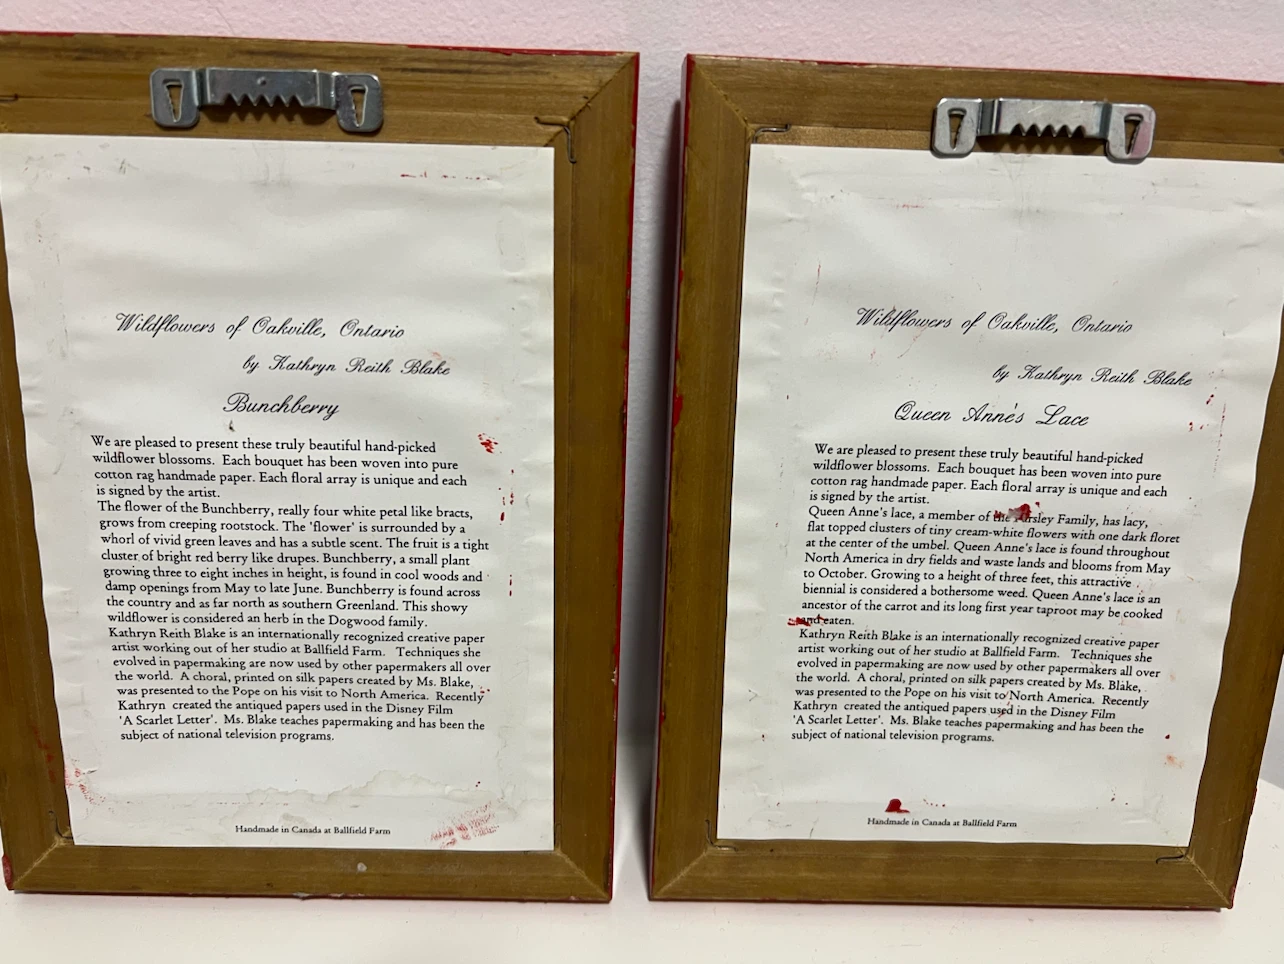 Wildflowers of Oakville, Ontario
by Kathryn Reith Blake
Bunchberry
We are pleased to present these truly beautiful hand-picked
wildflower blossoms. Each bouquet has been woven into pure
cotton rag handmade paper. Each floral array is unique and each
is signed by the artist.
The flower of the Bunchberry, really four white petal like bracts,
grows from creeping rootstock. The 'flower' is surrounded by a
whorl of vivid green leaves and has a subtle scent. The fruit is a tight
cluster of bright red berry like drupes. Bunchberry, a small plant
growing three to eight inches in height, is found in cool woods and
damp openings from May to late June. Bunchberry is found across
the country and as far north as southern Greenland. This showy
wildflower is considered an herb in the Dogwood family.
Kathryn Reith Blake is an internationally recognized creative paper
artist working out of her studio at Ballfield Farm. Techniques she
evolved in papermaking are now used by other papermakers all over
the world. A choral, printed on silk papers created by Ms. Blake,
was presented to the Pope on his visit to North America. Recently
Kathryn created the antiqued papers used in the Disney Film
'A Scarlet Letter'. Ms. Blake teaches papermaking and has been the
subject of national television programs.
Handmade in Canada at Ballfield Farm
Wildflowers of Oakville, Ontario
by Kathryn Reith Blake
Queen Anne's Lace
We are pleased to present these truly beautiful hand-picked
wildflower blossoms. Each bouquet has been woven into pure
cotton rag handmade paper. Each floral array is unique and each
is signed by the artist.
Queen Anne's lace, a member of the Parsley Family, has lacy,
flat topped clusters of tiny cream-white flowers with one dark floret
at the center of the umbel. Queen Anne's lace is found throughout
North America in dry fields and waste lands and blooms from May
to October. Growing to a height of three feet, this attractive
biennial is considered a bothersome weed. Queen Anne's lace is an
ancestor of the carrot and its long first year taproot may be cooked
and eaten.
Kathryn Reith Blake is an internationally recognized creative paper
artist working out of her studio at Ballfield Farm. Techniques she
evolved in papermaking are now used by other papermakers all over
the world. A choral, printed on silk papers created by Ms. Blake,
was presented to the Pope on his visit to North America. Recently
Kathryn created the antiqued papers used in the Disney Film
'A Scarlet Letter'. Ms. Blake teaches papermaking and has been the
subject of national television programs.
Handmade in Canada at Ballfield Farm